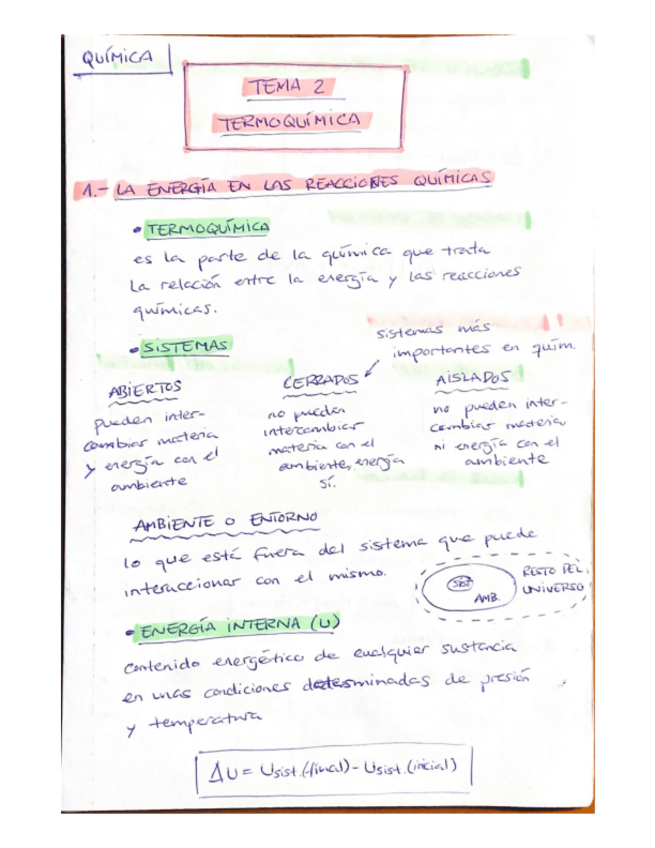 QUÍMICA
TEMA 2
TERMOQUÍMICA
1.- LA ENERGÍA EN LAS REACCIONES QUÍMICAS
• TERMOQUÍMICA
es la parte de la química que trata
la relación entre la energía y las reacciones
químicas.
• SISTEMAS
sistemas más
importantes en quím.
ABIERTOS
pueden inter-
cambiar materia
y energía con el
ambiente
CERRADOS
no pueden
intercambiar
materia con el
ambiente, energía
sí.
AISLADOS
no pueden inter-
cambiar materia
ni energía con el
ambiente
AMBIENTE O ENTORNO
lo que está fuera del sistema que puede
interaccionar con el mismo.
SIST
AMB.
RESTO DEL
UNIVERSO
• ENERGÍA INTERNA (U)
contenido energético de cualquier sustancia
en unas condiciones determinadas de presión
y temperatura
ΔU = Usist.(final) - Usist.(inicial)